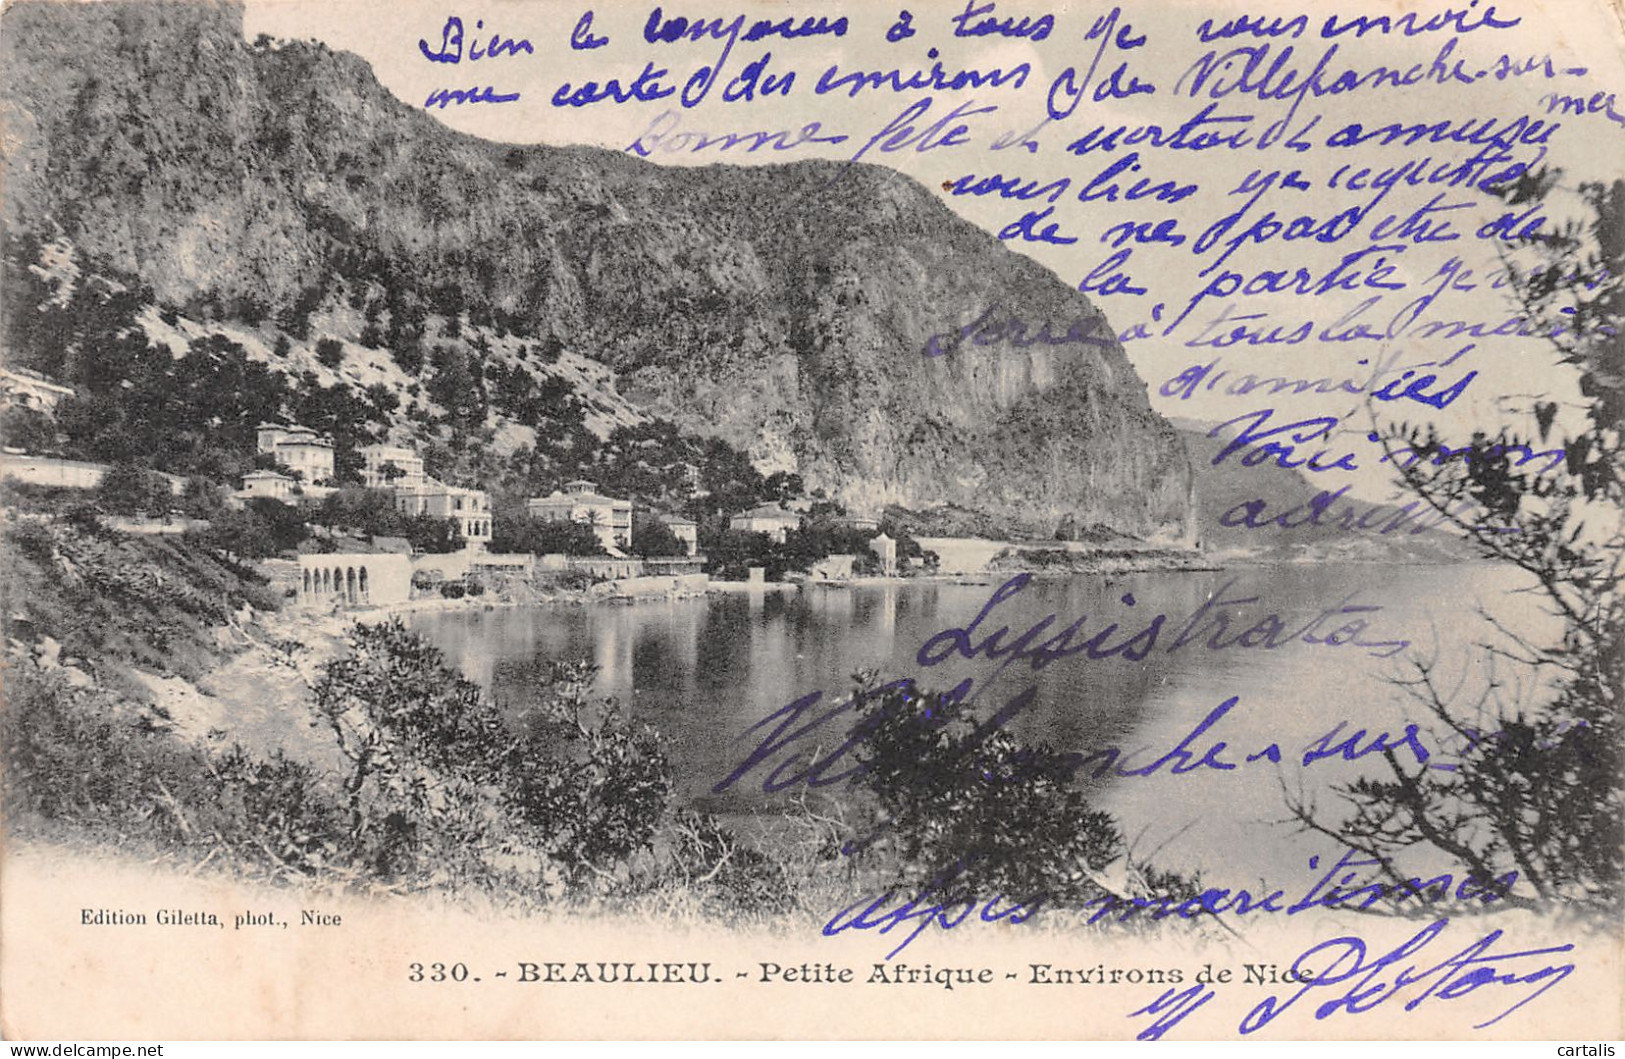 Bien le bonjour à tous je vous envoie
une carte des environs de Villefranche-sur-
mer
Bonne fete et surtout amusé
vous bien je regrette
de ne pas etre de
la partie je vous
serre à tous la main
d'amitiés
Voici mon
adresse
Lysistrata
Villefranche-sur-mer
alpes maritimes
Edition Giletta, phot., Nice
330. - BEAULIEU. - Petite Afrique - Environs de Nice
cartalis